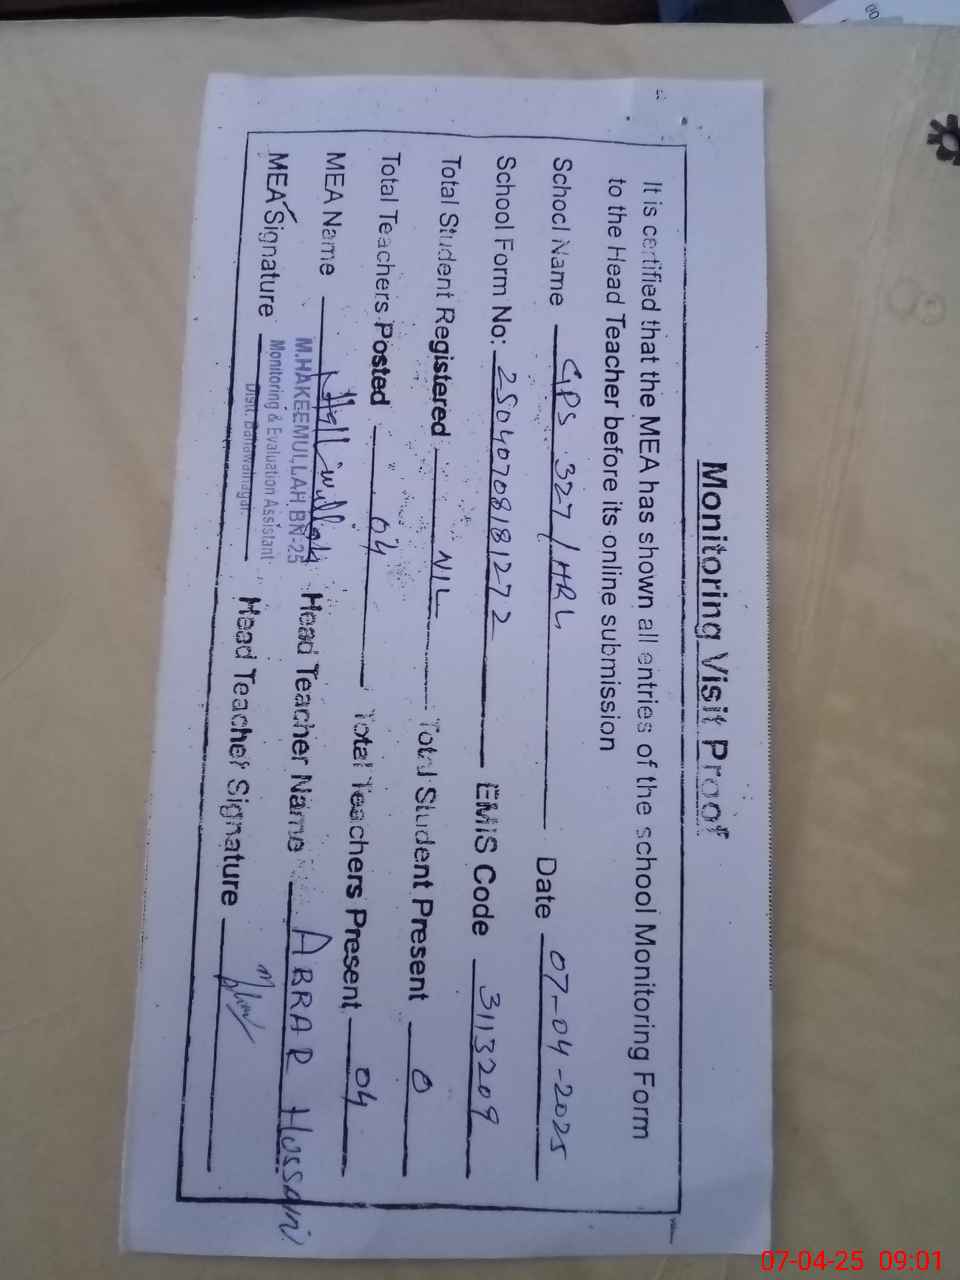 Monitoring Visit Proof
It is certified that the MEA has shown all entries of the school Monitoring Form
to the Head Teacher before its online submission
School Name GPS 327/HRL Date 07-04-2025
School Form No: 25040708181272 EMIS Code 3113209
Total Student Registered NIL Total Student Present 0
Total Teachers Posted 04 Total Teachers Present 04
MEA Name Head Teacher Name ABRAR HUSSAIN
M.HAKEEMULLAH BN-25
Monitoring & Evaluation Assistant
Distt. Bahawalnagar
MEA Signature Head Teacher Signature
07-04-25 09:01